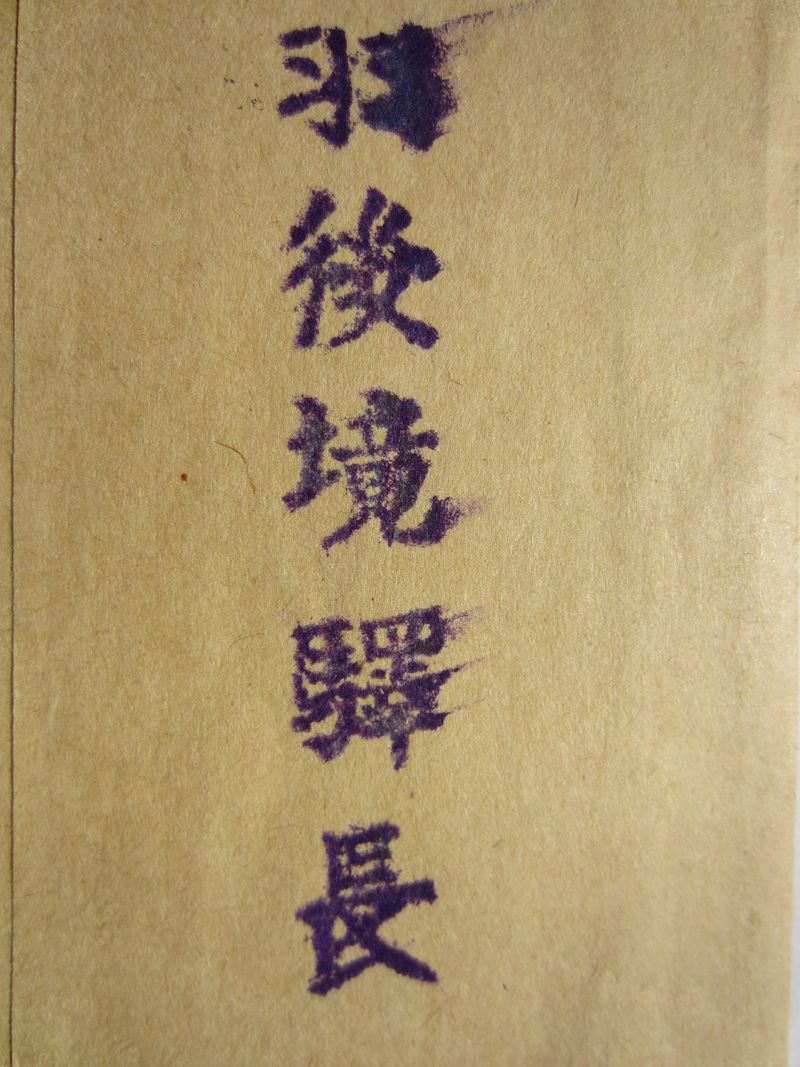 羽後境驛長